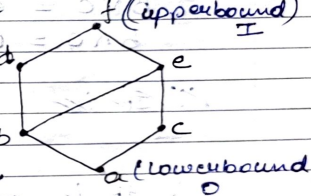 f (upperbound)
I
d
e
b
c
a (lowerbound
O